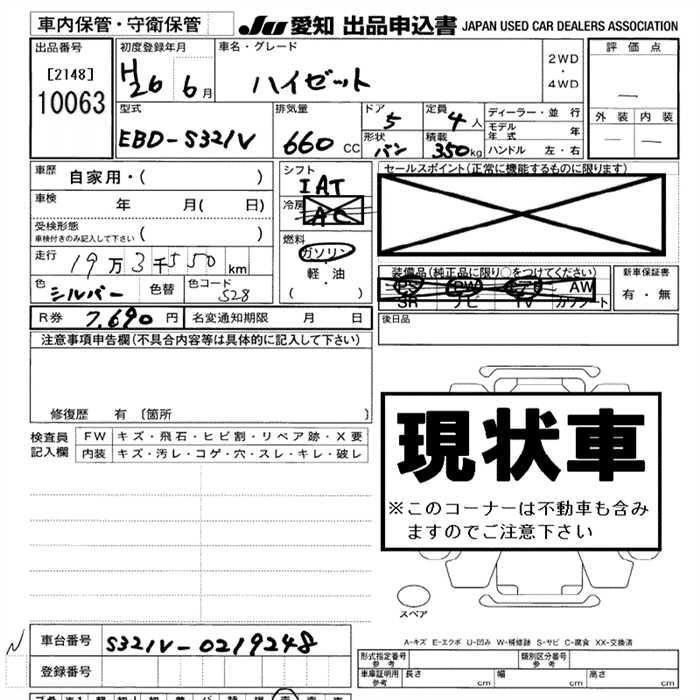 車内保管・守衛保管
JU 愛知 出品申込書 JAPAN USED CAR DEALERS ASSOCIATION
出品番号
[2148]
10063
初度登録年月
H26 6月
車名・グレード
ハイゼット
2WD
・
4WD
評価点
—
外装 内装
— —
型式
EBD-S321V
排気量
660 cc
ドア 5
定員 4人
形状 バン
積載 350kg
ディーラー・並行
モデル年式 年
ハンドル 左・右
車歴 自家用・( )
車検 年 月( 日)
受検形態
車検付きのみ記入して下さい ( )
走行 19万3千550km
色 シルバー 色替 色コード S28
R券 7,690円 名変通知期限 月 日
シフト
IAT
冷房 AC
燃料
ガソリン
・
軽・油
( )
セールスポイント(正常に機能するものに限ります)
装備品(純正品に限り○をつけてください)
PS PW エアB AW
SR ナビ TV カワシート
新車保証書
有・無
後日品
注意事項申告欄(不具合内容等は具体的に記入して下さい)
修復歴 有〔箇所 〕
検査員記入欄
FW キズ・飛石・ヒビ割・リペア跡・X要
内装 キズ・汚レ・コゲ・穴・スレ・キレ・破レ
現状車
※このコーナーは不動車も含み
ますのでご注意下さい
スペア
A-キズ E-エクボ U-凹み W-補修跡 S-サビ C-腐食 XX-交換済
車台番号 S321V-0219248
登録番号
型式指定番号 参考
類別区分番号 参考
車庫証明用 参考 長さ cm 幅 cm 高さ cm